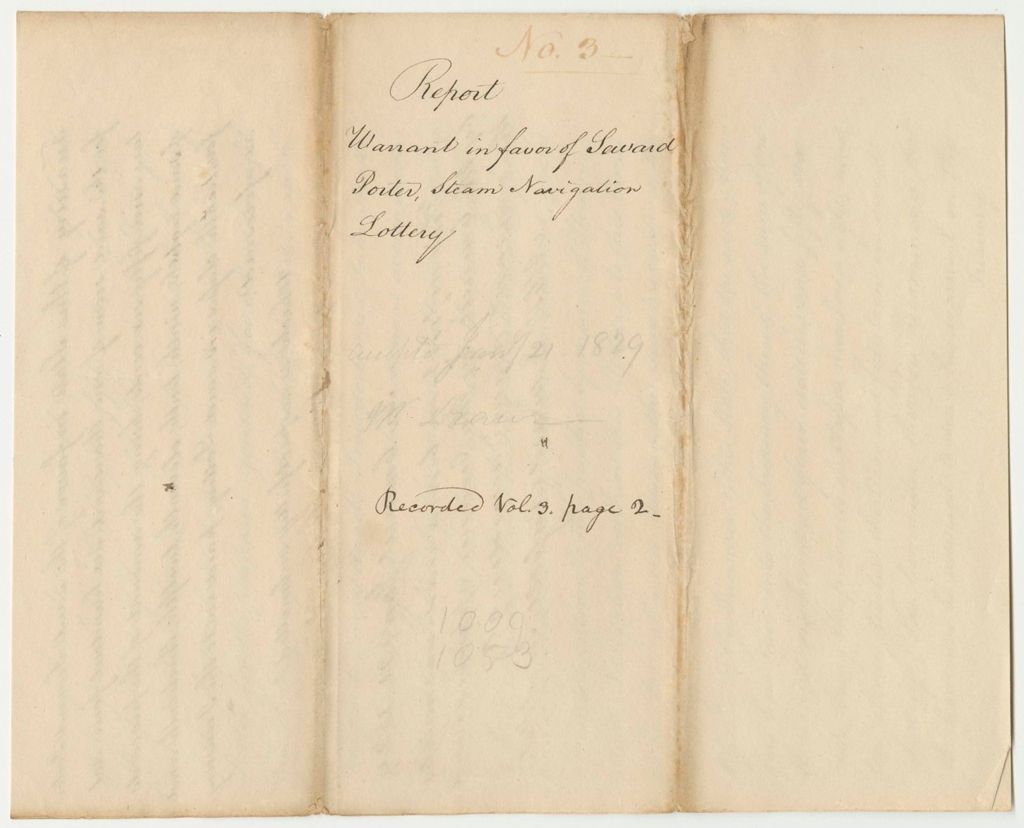 No. 3
Report
Warrant in favor of Saward
Porter, Steam Navigation
Lottery
Jany 21 1829
Recorded Vol. 3. page 2
1009
1053